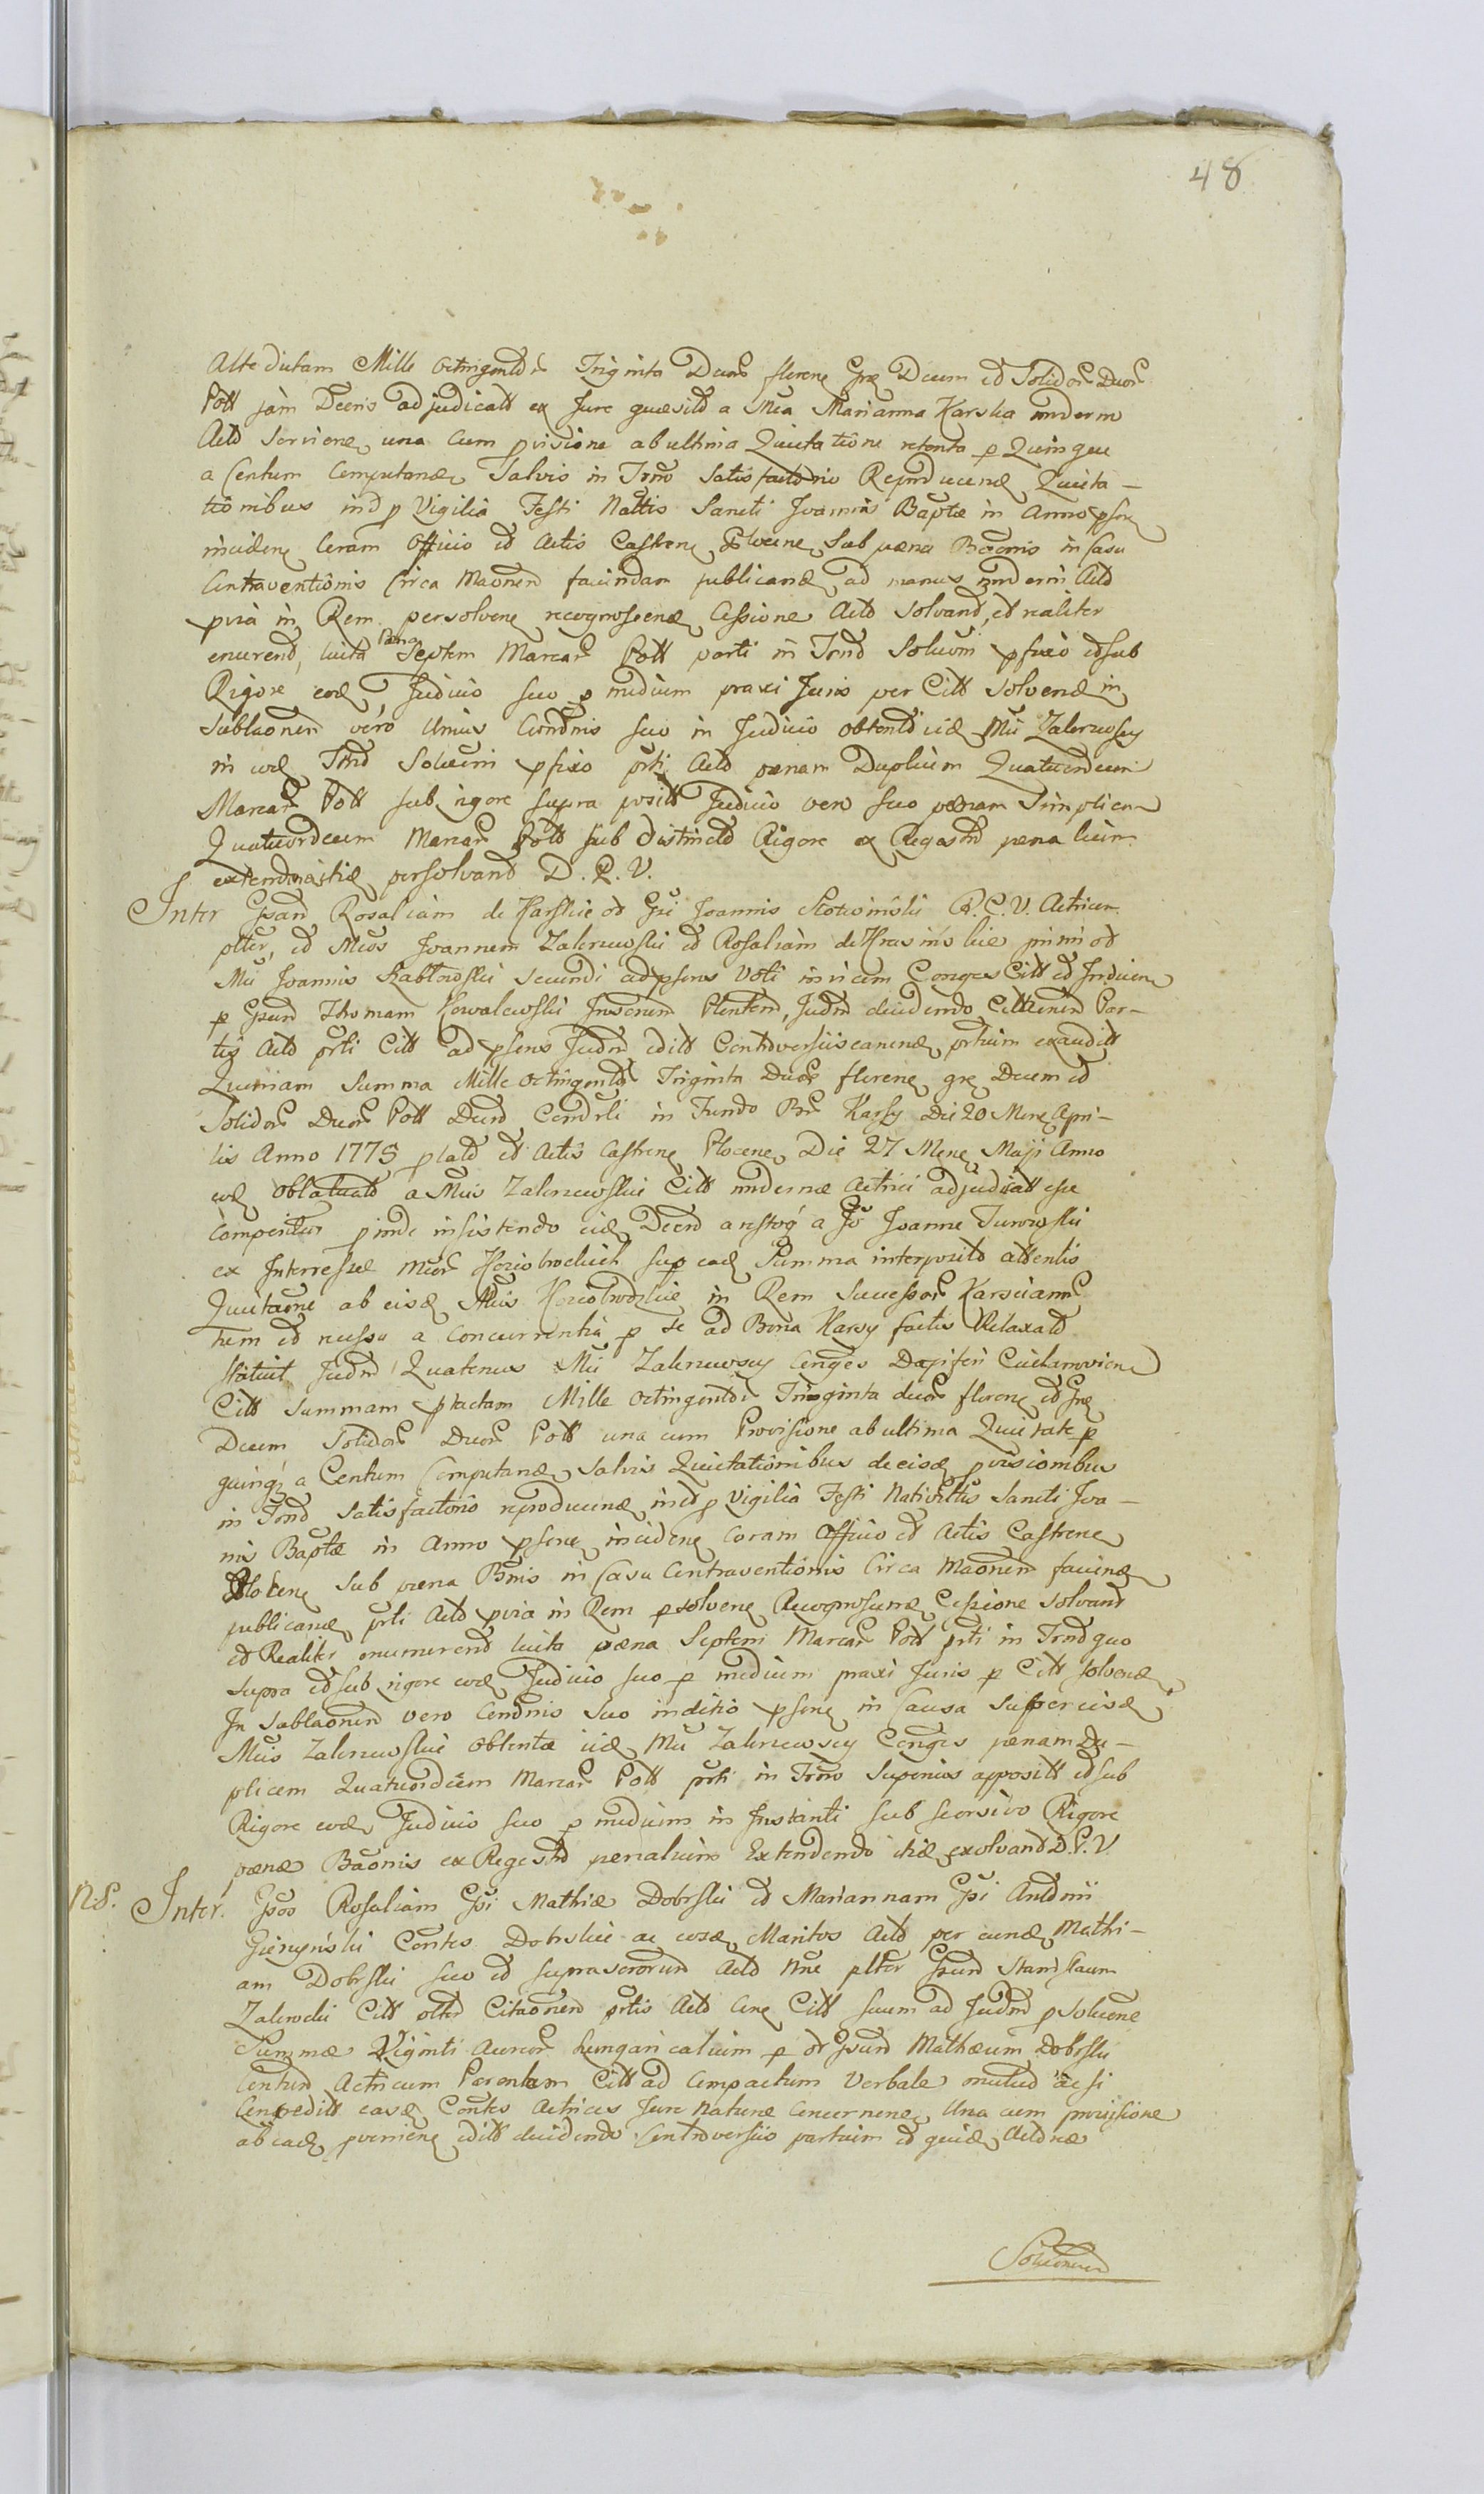 48
Altedictam Mille octingentor Triginta Duor floren gr Decem et Solidor Duor
Poll jam Decris adjudicatt ex Jure quæsito a Mca Marianna Karska moderno
Acto Servien, una cum pvisione ab ultima Quietatione retenta p Quinque
a Centum Computand, Salvis in Trno Satisfactorio Reproducend Quieta-
tionibus in et p Vigilia Festi Nattis Sancti Joannis Baptæ in Anno psen
inciden Coram Officio et Actis Castren Plocen, Sub pæna Bæonis in Casu
Contraventionis Circa Maonem faciendam publicand, ad manus moderni Acto
pvia in Rem persolven recognoscend Cessione Acto Solvand, et realiter
enumrend, luita Pæna Septem Marcar Poll parti in Trno Solucni pfixo et Sub
Rigore eod Judicio suo p medium praxi Juris per Citt Solvend in
Sublaonem vero Unius Condnis suo in Judicio obtent iid Mci Zalewscy
in eod Trno Solucni pfixo prti Acto pænam Duplicem Quatuordecim
Marcar Poll sub rigore supra positt Judicio vero suo pænam Simplicem
Quatuordecim Marcar Poll sub distincto Rigore ex Regestro pænalium
extendendo itid persolvand D. P. V.
Inter Gsam Rosaliam de Karskie od Gsi Joannis Skotwinski R. C. V. Actricem
plter, et Mcos Joannem Zalewski et Rosaliam de Krasinskie primi od
Mci Joannis Rabtowski secundi ad psens Voti invicem Conges Citt et Inducen
p Gsum Thomam Kowalewski Juscnem Plentem, Judm decidendo Cittionem Par-
tis Acto prti Citt ad psens Judm editt Controversiis earund prtium exauditt
Quoniam Summa Mille octingentor Triginta Duor floren gr Decem et
Solidor Duor Poll Decro Comdrli in Fundo Bnr Karsy Die 20 Mens Apri-
lis Anno 1775 plato et Actis Castren Plocen, Die 27 Mens Maji Anno
eod oblatuato a Mcis Zalewskie Citt modernæ Actrici adjudicatt esse
comperitur pinde insistendo eid Decro arestoq a Gso Joanne Turowski
ex Interresse Mcor Koziobrodckich sup ead Summa interposito attentis
Quietaone ab eisd Mcis Koziobrodzkie in Rem Successor Karscianr
tum et recessu a Concurrentia p Se ad Bona Karsy factis Relaxato
Statuit Judm Quatenus Mci Zalewscy Conges Dapiferi Ciechanovien
Citt Summam ptactam Mille octingentor Triginta duor floren et gr
Decem Solidor Duor Poll una cum Provisione ab ultima Quietate p
quinq a Centum Computand, Salvis Quietationibus de eisd pvisionibus
in Trno Satisfactorio reproducend in et p Vigilia Festi Nativittis Sancti Joa-
nis Baptæ in Anno psen inciden coram Officio et Actis Castren
Plocen Sub pæna Bnis in Casu Contraventionis Circa Maonem faciend
publicand, prti Acto pvia in Rem psolven Recognoscend Cessione Solvand
et Realiter enumerend luita pæna Septem Marcar Poll prti in Trno quo
supra et sub rigore eod Judicio suo p medium praxi Juris p Citt solvend
In Sublaonem vero Condnis suo inditio psen in Causa super eisd
Mcis Zalewskie obtentæ iid Mci Zalewscy Conges pænam Du-
plicem Quatuordecim Marcar Poll prti in Trno Superius appositt et sub
Rigore eod, Judicio suo p medium in Instanti sub seorsivo Rigore
pænæ Bæonis ex Regestro pænalium Extendendo itid exolvand D. P. V.
NS. Inter Gsos Rosaliam Gsi Mathiæ Dobrski et Mariannam Gsi Antonii
Gienzyński Contes Dobrskie ac eosd Maritos Acto per eund Mathi-
am Dobrski suo et supra sororum Acto Nne plter Gsum Stanislaum
Zalewski Citt plter Citaonem prtis Acto Cne Citt suum ad Judm psolucne
Summæ Viginti Aureor hungaricalium p od Gsum Mathæum Dobrski
Contm Actricum Parentem Citt ad Compactum Verbale mutuo ac si
Concreditt easd Contes Actrices Jure Naturæ Concernend, Una cum provisione
ab eade provenien editt decidendo Controversiis partium et quid Actoræ
Solucionem